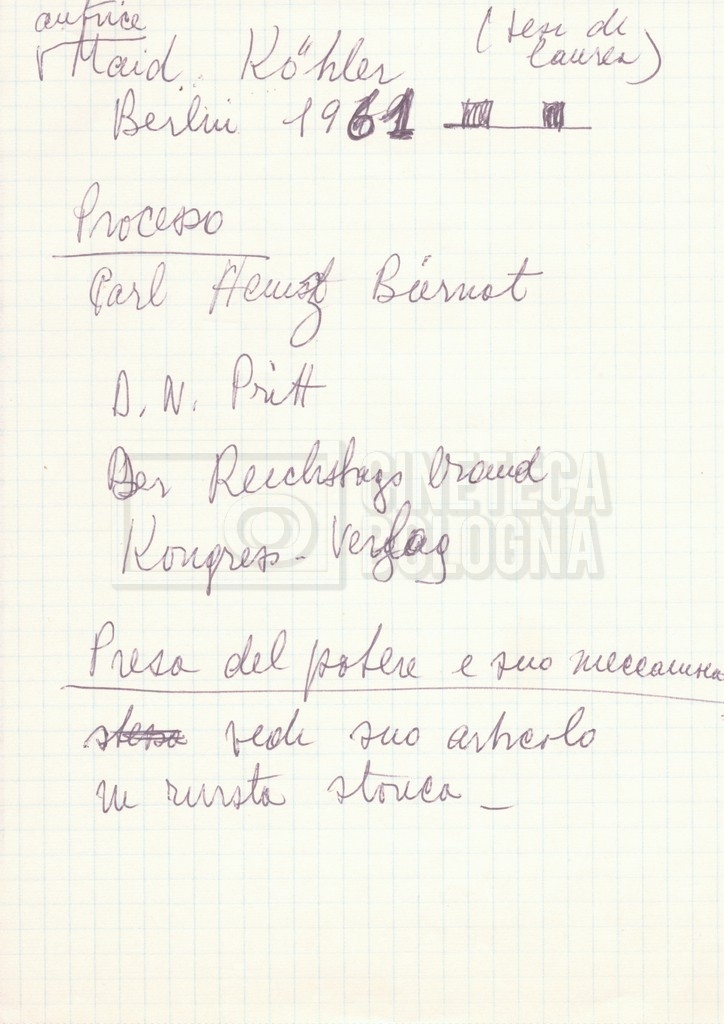 autrice
Maid. Köhler (tesi di
laurea)
Berlin 1961
Processo
Carl Heinz Biernat
D. N. Pritt
Der Reichstags brand
Kongress-Verlag
Presa del potere e suo meccanismo
stesso vedi suo articolo
in rivista storica _
CINETECA
BOLOGNA